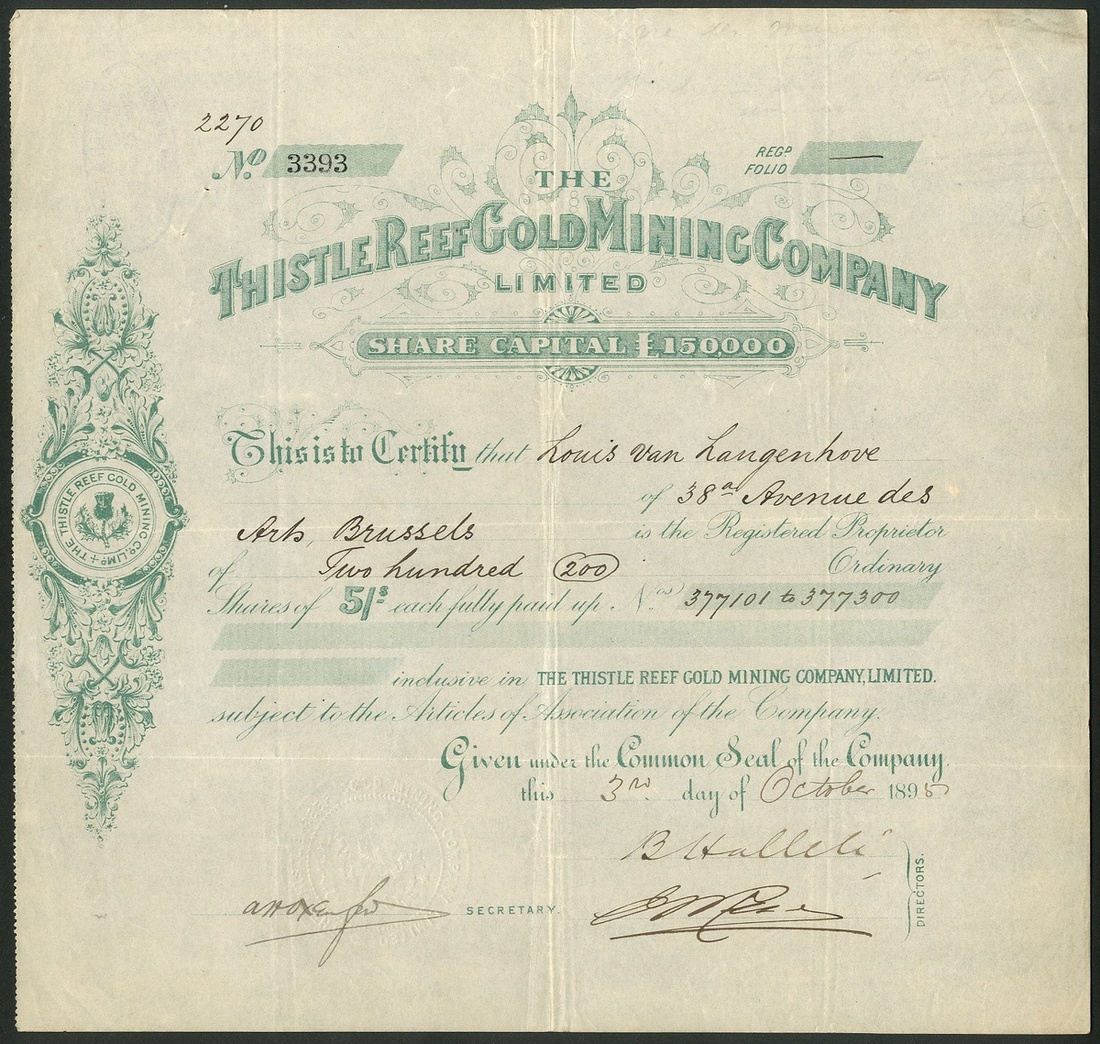 2270
No. 3393
REGD.
FOLIO —
THE
THISTLE REEF GOLD MINING COMPANY
LIMITED
SHARE CAPITAL £150,000
This is to Certify that Louis van Langenhove
of 38a Avenue des
Arts, Brussels is the Registered Proprietor
of Two hundred (200) Ordinary
Shares of 5/s each fully paid up Nos 377101 to 377300
inclusive in THE THISTLE REEF GOLD MINING COMPANY, LIMITED.
subject to the Articles of Association of the Company.
Given under the Common Seal of the Company,
this 3rd day of October 1895
SECRETARY.
DIRECTORS.
THE THISTLE REEF GOLD MINING CO. LIMD.